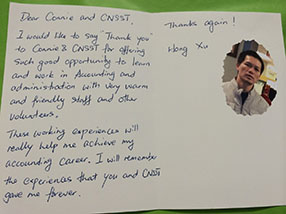 Dear Connie and CNSST,
I would like to say "Thank you"
to Connie & CNSST for offering
such good opportunity to learn
and work in Accounting and
administration with very warm
and friendly staff and other
volunteers.
These working experiences will
really help me achieve my
accounting career. I will remember
the experiences that you and CNSST
gave me forever.
Thanks again!
Hong Xu